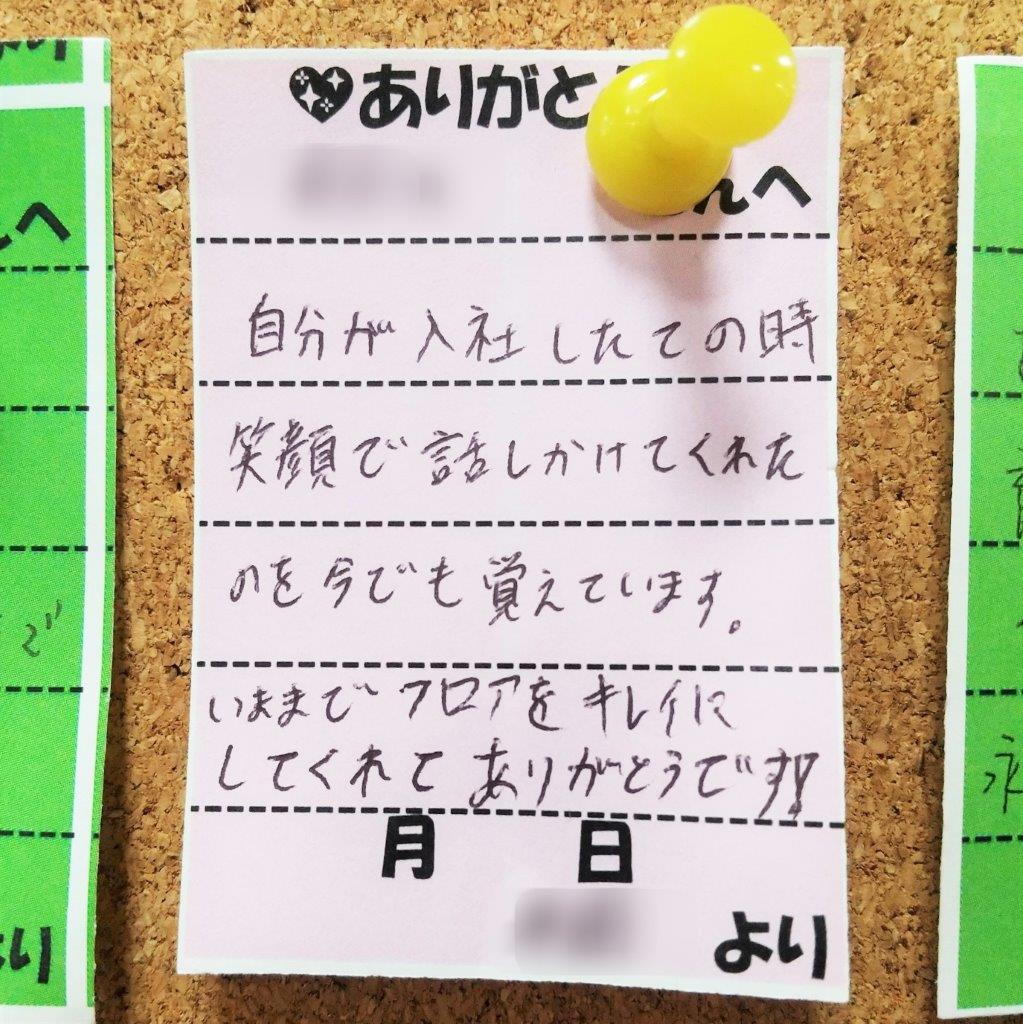 ありがと
んへ
自分が入社したての時
笑顔で話しかけてくれた
のを今でも覚えています。
いままでフロアをキレイに
してくれてありがとうです!!
月 日
より
へ
で
より